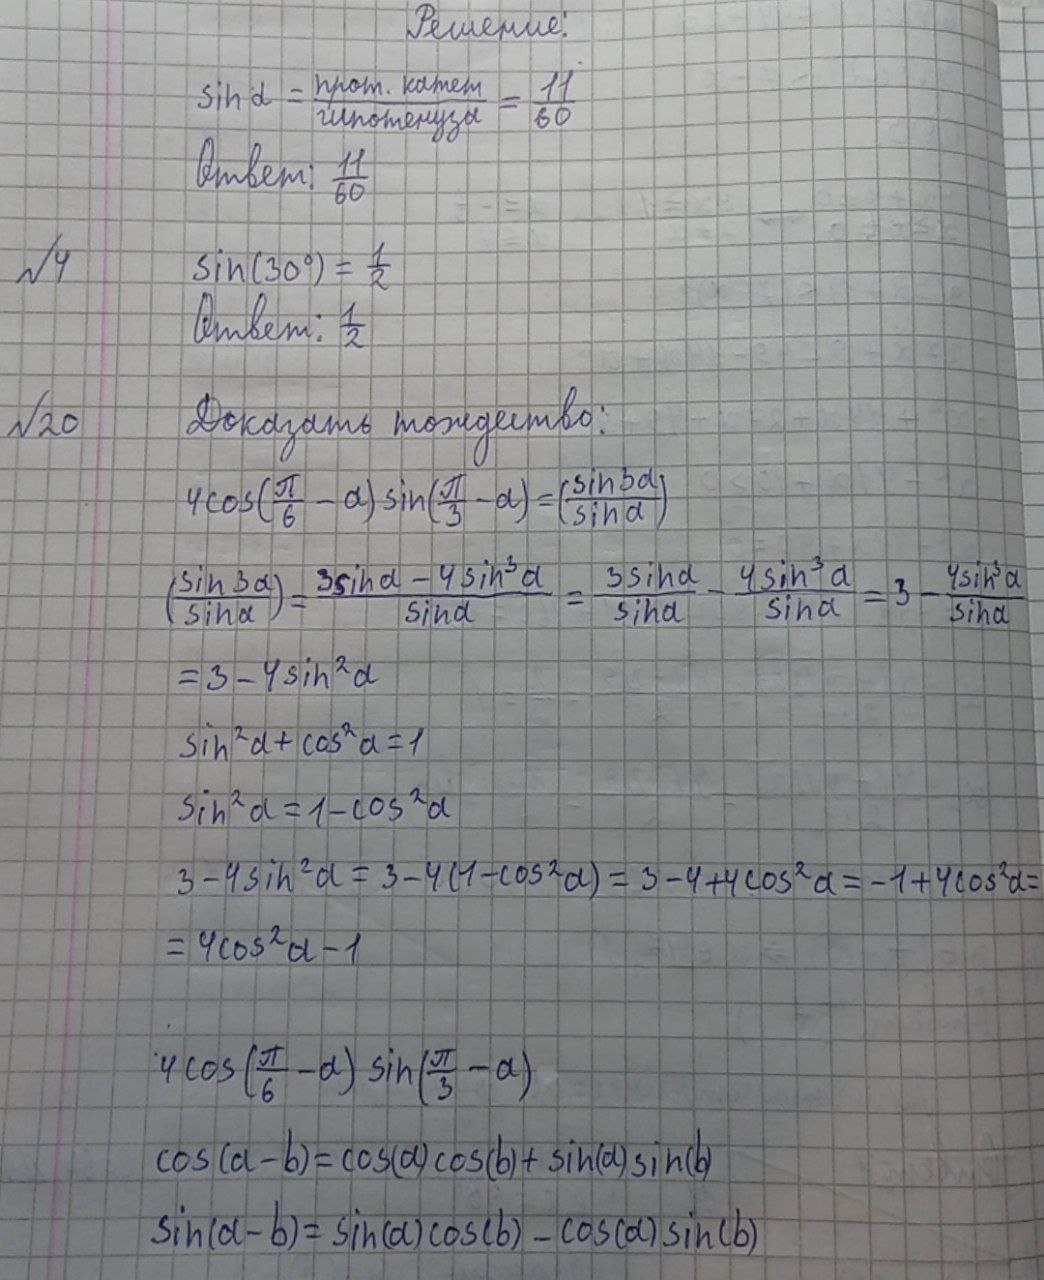 Решение:
sin α = прот. катет / гипотенуза = 11/60
Ответ: 11/60
№4 sin(30°) = 1/2
Ответ: 1/2
№20 Доказать тождество:
4cos(π/6 − α) sin(π/3 − α) = (sin3α/sinα)
(sin3α/sinα) = (3sinα − 4sin³α)/sinα = 3sinα/sinα − 4sin³α/sinα = 3 − 4sin³α/sinα
= 3 − 4sin²α
sin²α + cos²α = 1
sin²α = 1 − cos²α
3 − 4sin²α = 3 − 4(1 − cos²α) = 3 − 4 + 4cos²α = −1 + 4cos²α =
= 4cos²α − 1
4cos(π/6 − α) sin(π/3 − α)
cos(α − b) = cos(α)cos(b) + sin(α)sin(b)
sin(α − b) = sin(α)cos(b) − cos(α)sin(b)